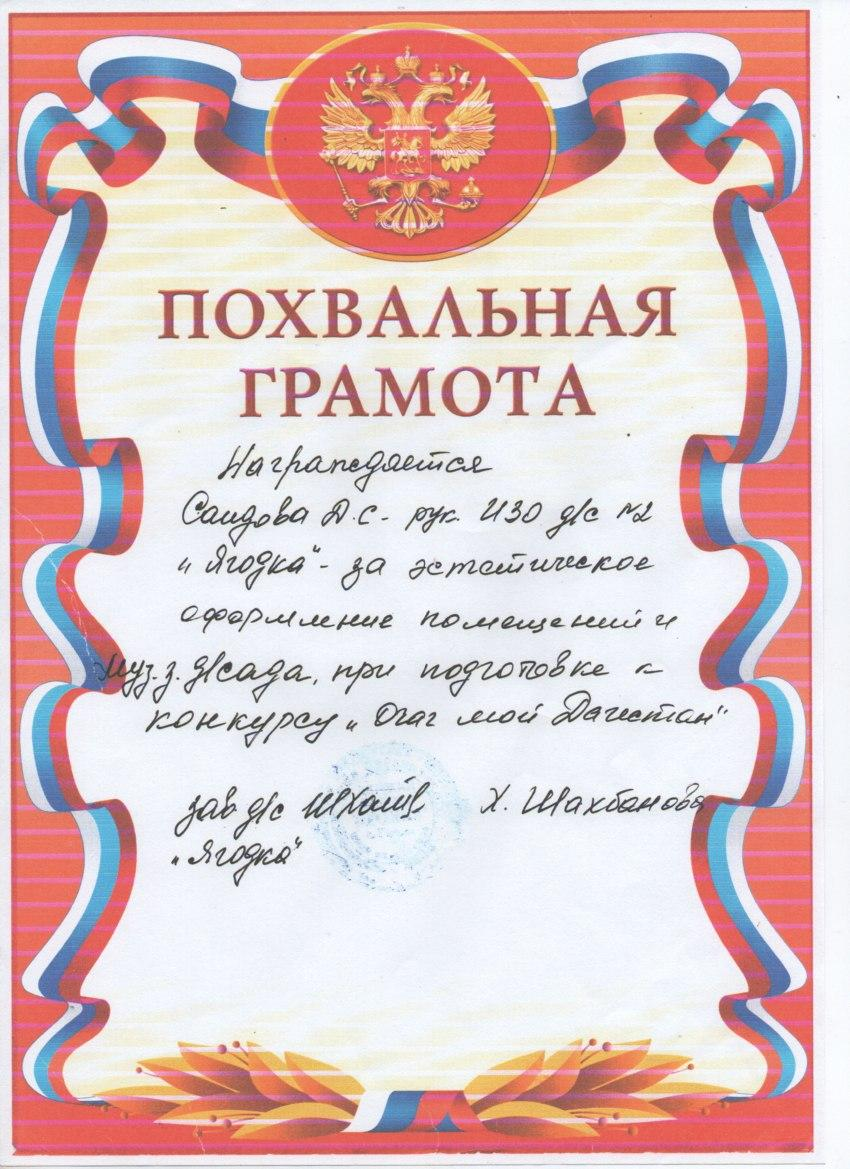 ПОХВАЛЬНАЯ
ГРАМОТА
Награждается
Саидова Д.С - рук. ИЗО д/с №2
„Ягодка" - за эстетическое
оформление помещений и
муз. з. д/сада, при подготовке к
конкурсу „Очаг мой Дагестан"
зав д/с Х. Шахбанова
„Ягодка"